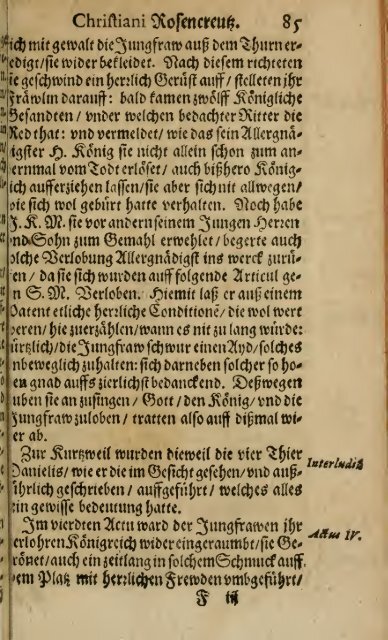 Christiani Rosencreutz. 85
sich mit gewalt die Jungfraw auß dem Thurn er-
ledigt/ sie wider bekleidet. Nach diesem richteten
sie geschwind ein herzlich Gerüst auff/ stelleten jhr
Fräwlin darauff: bald kamen zwölff Königliche
Gesandten/ vnder welchen bedachter Ritter die
Red that: vnd vermeldet/ wie das sein Allergnä-
digster H. König sie nicht allein schon zum an-
dernmal vom Todt erlöset/ auch bißhero König-
lich aufferziehen lassen/ sie aber sich nit allwegen/
wie sich wol gebürt hatte verhalten. Noch habe
J. K. M. sie vor andern seinem Jungen Herren
vnd Sohn zum Gemahl erwehlet/ begerte auch
solche Verlobung Allergnädigst ins werck zurü-
sten/ da sie sich wurden auff folgende Articul ge-
gen S. M. Verloben. Hiemit laß er auß einem
Patent etliche herzliche Conditionē/ die wol wert
weren/ hie zuerzählen/ wann es nit zu lang würde:
kürtzlich/ die Jungfraw schwur einen Ayd/ solches
vnbeweglich zuhalten: sich darneben solcher so ho-
hen gnad auffs zierlichst bedanckend. Deßwegen
huben sie an zusingen/ Gott/ den König/ vnd die
Jungfraw zuloben/ tratten also auff dißmal wi-
der ab.
Zur Kurtzweil wurden dieweil die vier Thier
Danielis/ wie er die im Gesicht gesehen/ vnd auß-
führlich geschrieben/ auffgeführt/ welches alles
ein gewisse bedeutung hatte.
Interludiū
Im vierdten Actu ward der Jungfrawen jhr
verlohren Königreich wider eingeraumbt/ sie Ge-
krönet/ auch ein zeitlang in solchem Schmuck auff
dem Platz mit herzlichen Frewden vmbgeführt/
Actus IV.
F iij